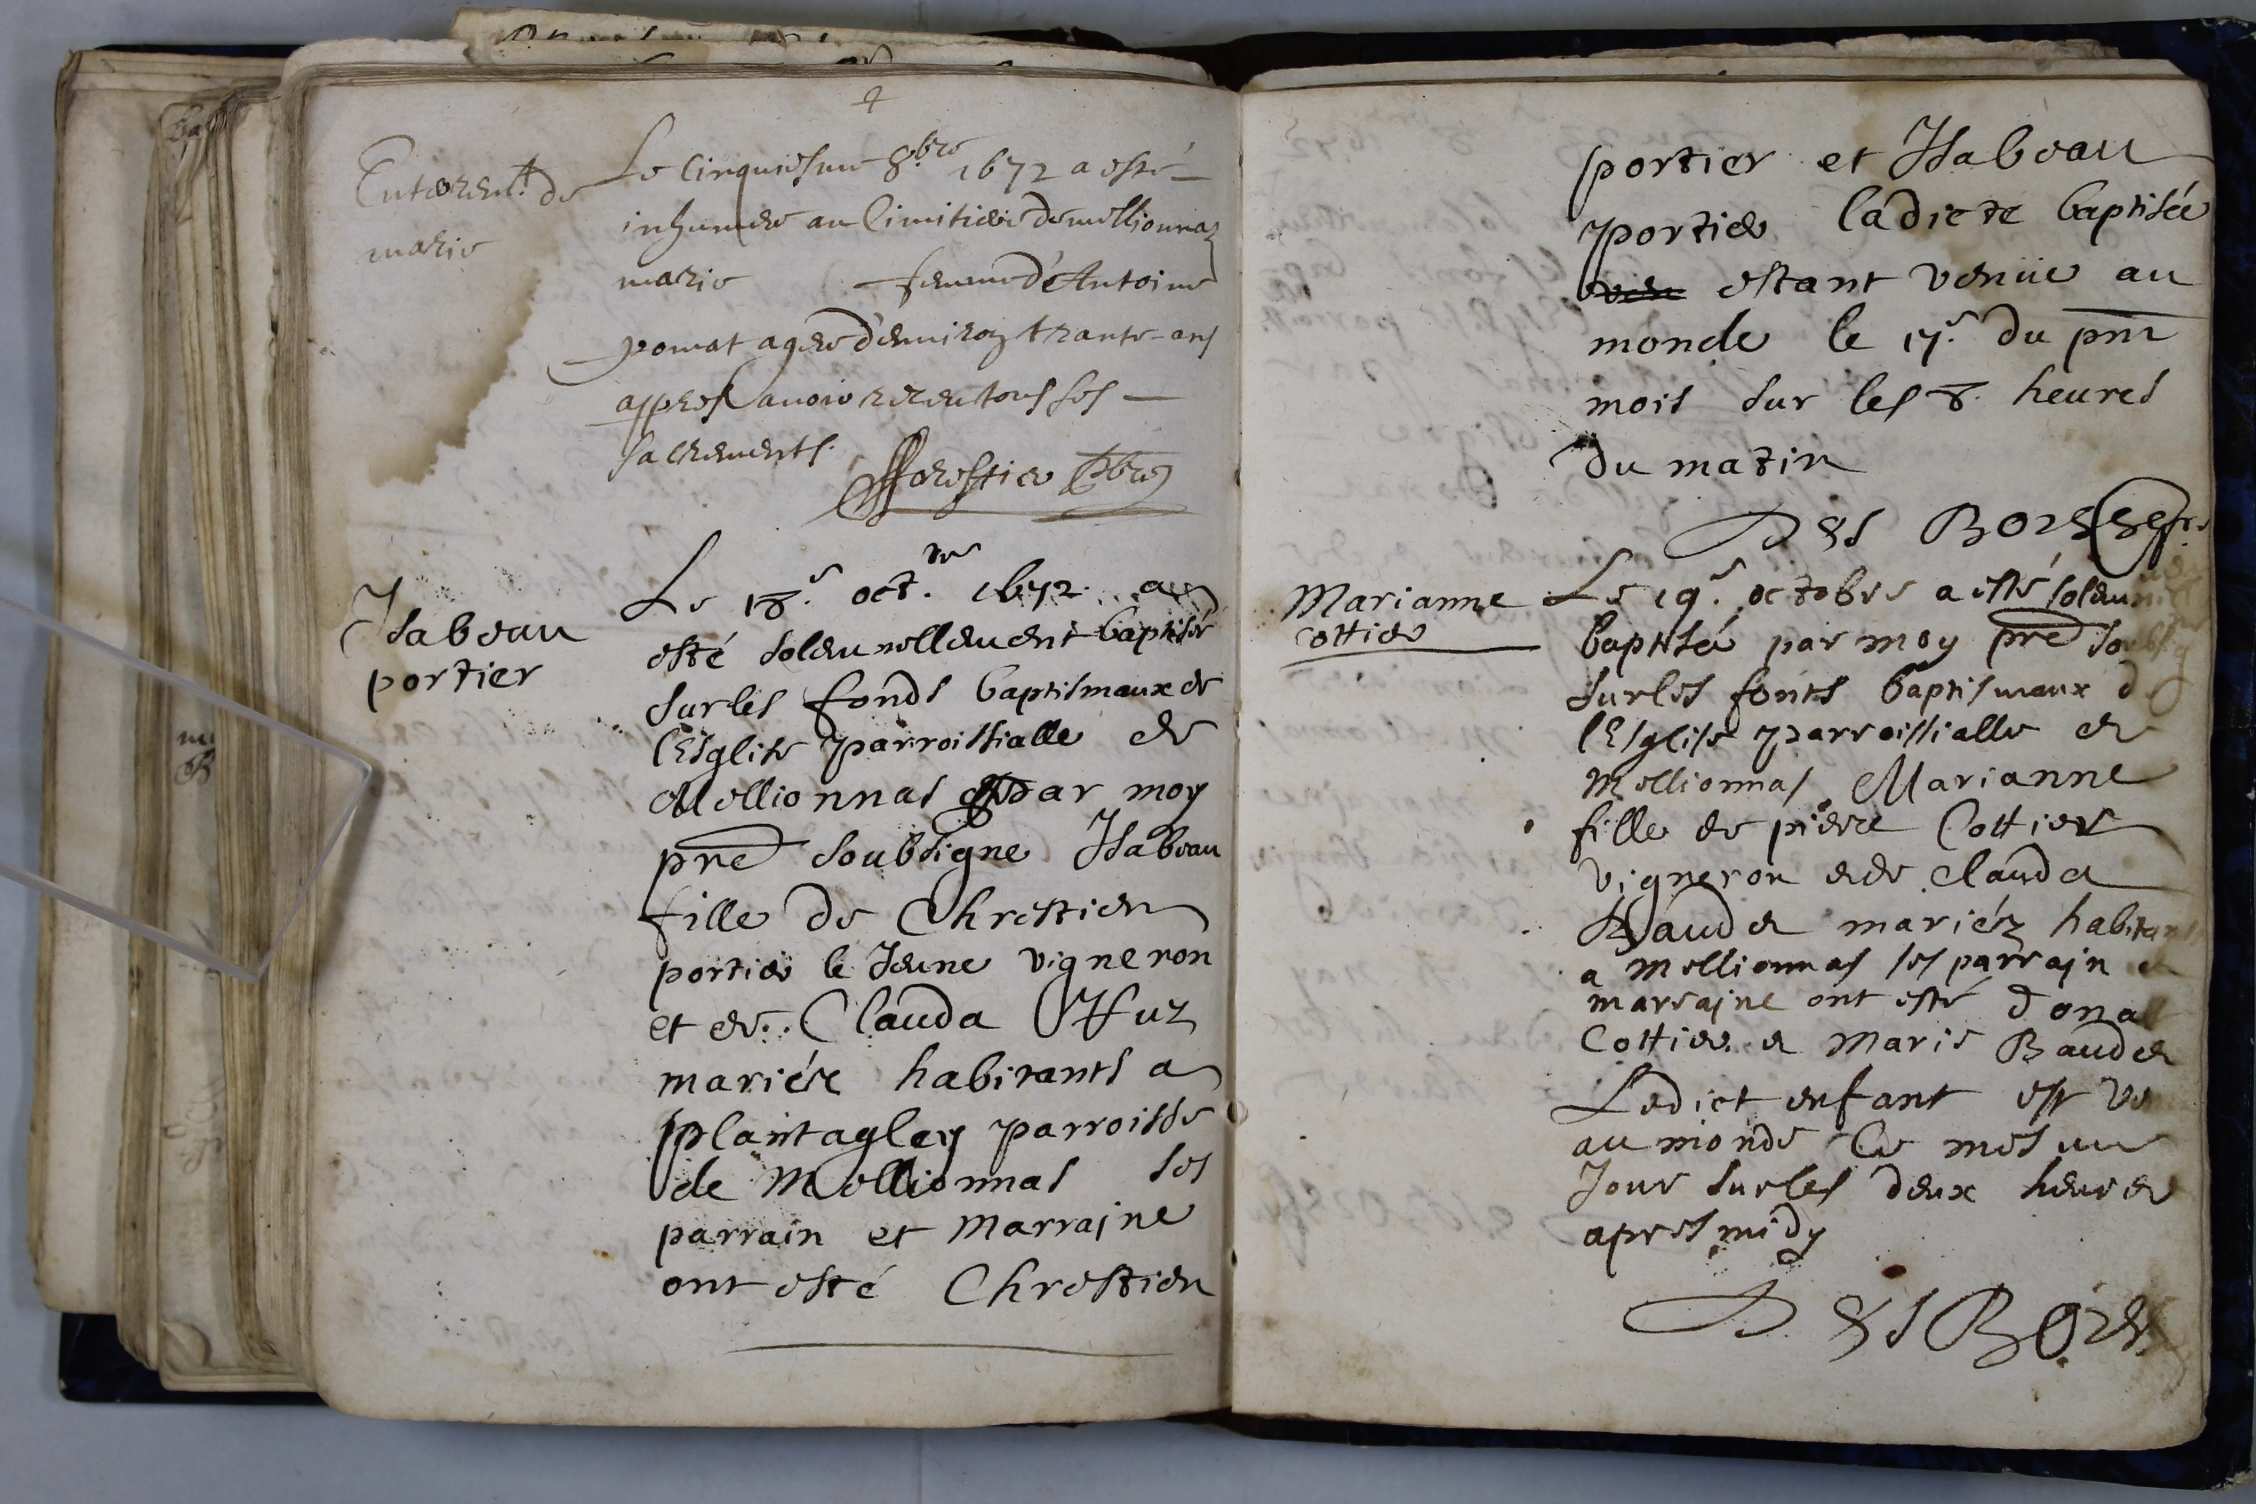 Enterem.t de
marie
Le cinquiesme 8.bre 1672 a esté
inhumee au cimitiere de mellionnaz
marie femme d'Antoine
pomat agee d'environ trante ans
appres avoir receu tous ses
sacrements.
fforestier pbre
Isabeau
portier
Le 18.e oct.bre 1672. a
esté solemnellement baptisée
sur les fonds baptismaux de
l'Esglise parroissialle de
Mellionnas par moy
pre soubsigne Isabeau
fille de Chrestien
portier le Jeune vigneron
et de Clauda
mariés habitants a
plantagley parroisse
de Mellionnas ses
parrain et marrajne
ont esté Chrestien
portier et Isabeau
portier ladicte baptisée
estant venüe au
monde le 17.e du pnt
mois sur les 8. heures
du matin
Des Bores
Marianne
cottier
Le 19.e octobre a esté solemn
baptisée par moy pre soubsig
sur les fonts baptismaux de
l'Esglise parroissialle de
Mellionnas Marianne
fille de pierre Cottier
vigneron et de Clauda
Baudet mariéz habitants
a Mellionnas ses parrajn et
marrajne ont esté donat
Cottier et Marie Baudet
Ledict enfant est ve
au monde le mesme
Jour sur les deux heures
apres midy
Des Bores